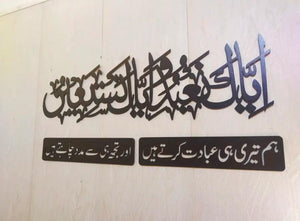 إياك نعبد وإياك نستعين
ہم تیری ہی عبادت کرتے ہیں اور تجھ ہی سے مدد چاہتے ہیں